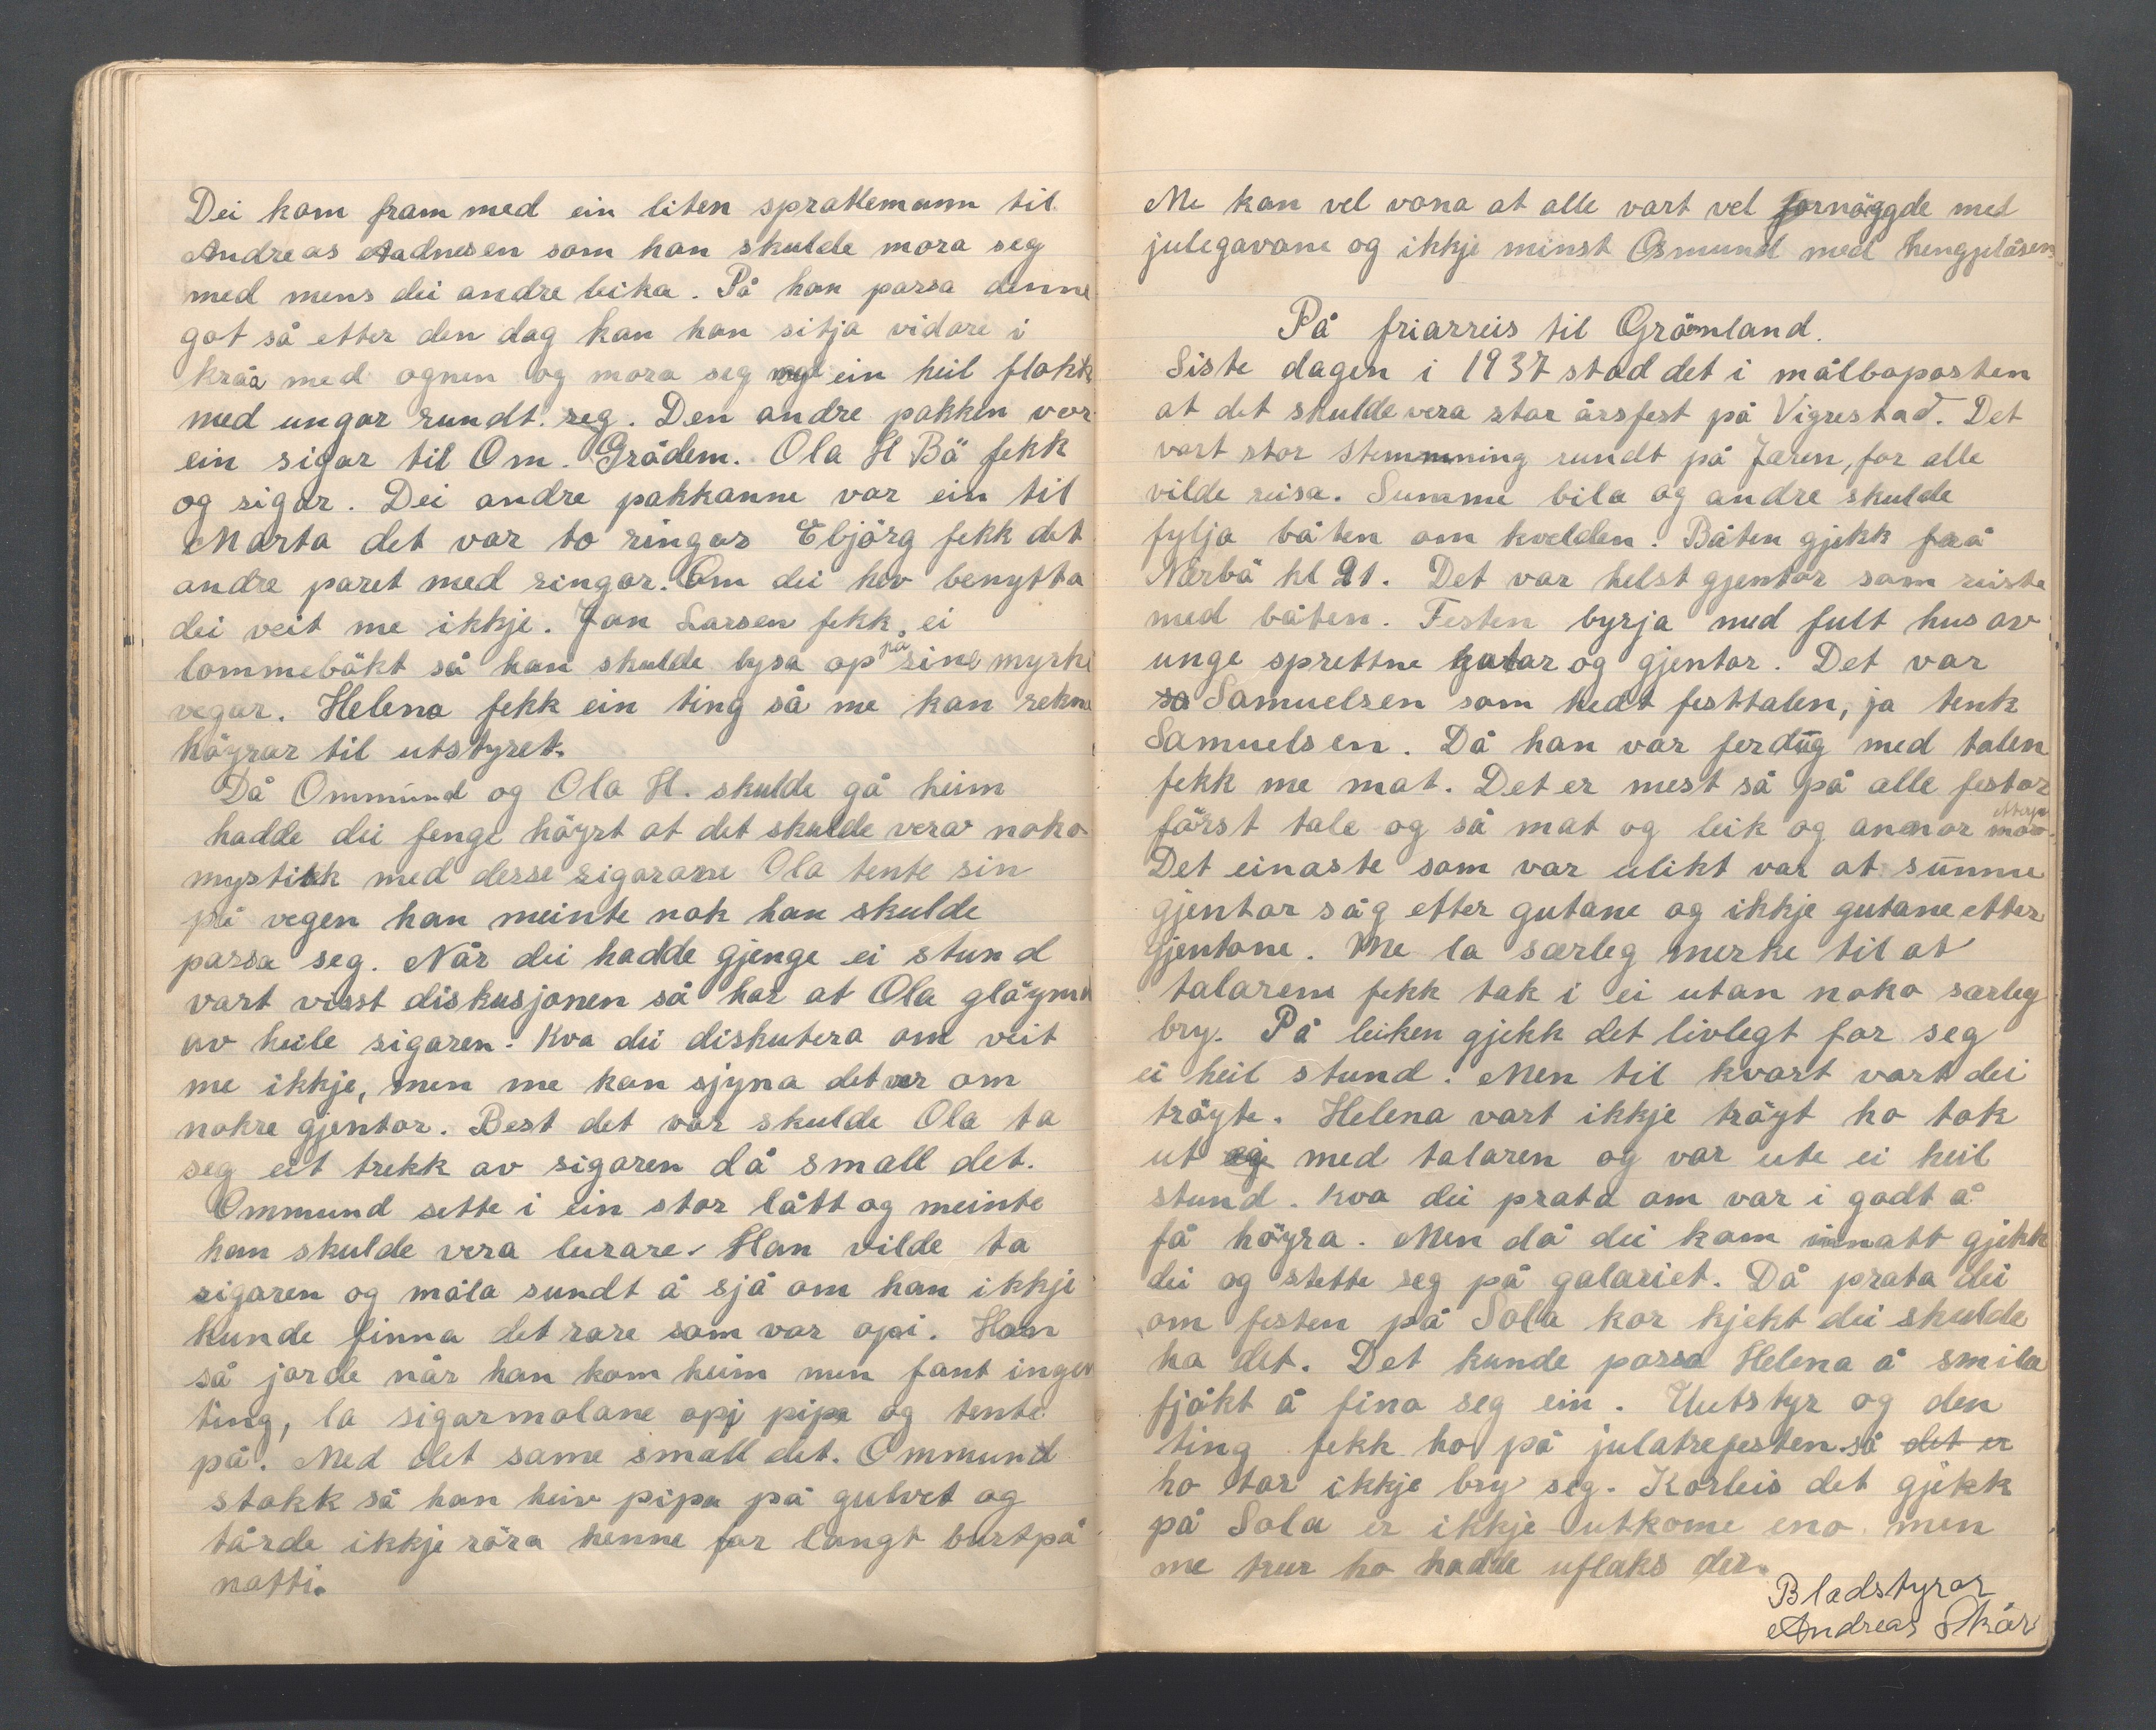 Dei kom fram med ein liten sprattemann til
Andreas Aadnesen som han skulde mora seg
med mens dei andre leika. På han passa denne
got så etter den dag kan han sitja vidare i
kråa med ognen og mora seg ein heil flokk
med ungar rundt seg. Den andre pakken var
ein sigar til Om. Grådem. Ola H Bö fekk
og sigar. Dei andre pakkanne var ein til
Marta det var to ringar Ebjörg fekk det
andre paret med ringar. Om dei hev benytta
dei veit me ikkje. Jan Larsen fekk ei
lommebökt så han skulde lysa op på sine myrke
vegar. Helena fekk ein ting så me kan rekne
höyrar til utstyret.
Då Ommund og Ola H. skulde gå heim
hadde dei fenge höyrt at det skulde vera noko
mystikk med desse sigarane Ola tente sin
på vegen han meinte nok han skulde
passa seg. Når dei hadde gjenge ei stund
vart visst diskusjonen så har at Ola glöymd
av heile sigaren. Kva dei diskutera om veit
me ikkje, men me kan sjyna det var om
nokre gjentor. Best det var skulde Ola ta
seg eit trekk av sigaren då small det.
Ommund sette i ein stor lått og meinte
han skulde vera lurare. Han vilde ta
sigaren og måla sundt å sjå om han ikkje
kunde finna det rare som var opi. Han
så jorde når han kom heim men fant ingen
ting, la sigarmolane opj pipa og tente
på. Med det same small det. Ommund
stakk så han heiv pipa på gulvet og
tårde ikkje röra henne for langt burtpå
natti.
Me kan vel vona at alle vart vel fornöggde med
julegavane og ikkje minst Osmund med hengjelåsen
På friarreis til Grönland.
Siste dagen i 1937 stod det i målboposten
at det skulde vera stor årsfest på Vigrestad. Det
vart stor stemmning rundt på Jæren, for alle
vilde reisa. Summe bila og andre skulde
fylja båten om kvelden. Båten gjekk frå
Nærbö kl 21. Det var helst gjentor som reiste
med båten. Festen byrja med fult hus av
unge sprettne gutar og gjentor. Det var
so Samuelsen som hedt festtalen, ja tenk
Samuelsen. Då han var ferdug med talen
fekk me mat. Det er mest så på alle festar
först tale og så mat og leik og annor moro.
Det einaste som var ulikt var at summe
gjentor såg etter gutane og ikkje gutane etter
gjentone. Me la særleg merke til at
talarens fekk tak i ei utan noko særleg
bry. På leiken gjekk det livlegt for seg
ei heil stund. Men til kvart vart dei
tröyte. Helena vart ikkje tröyt ho tok
ut med talaren og var ute ei heil
stund. Kva dei prata om var i godt å
få höyra. Men då dei kom innatt gjekk
dei og stette seg på galariet. Då prata dei
om festen på Sola kor kjekt dei skulde
ha det. Det kunde passa Helena å smila
fjåkt å fina seg ein. Uutstyr og den
ting fekk ho på julatrefesten så det er
ho tar ikkje bry seg. Korleis det gjekk
på Sola er ikkje utkome eno men
me trur ho hadde uflaks der.
Bladstyrar
Andreas Skår